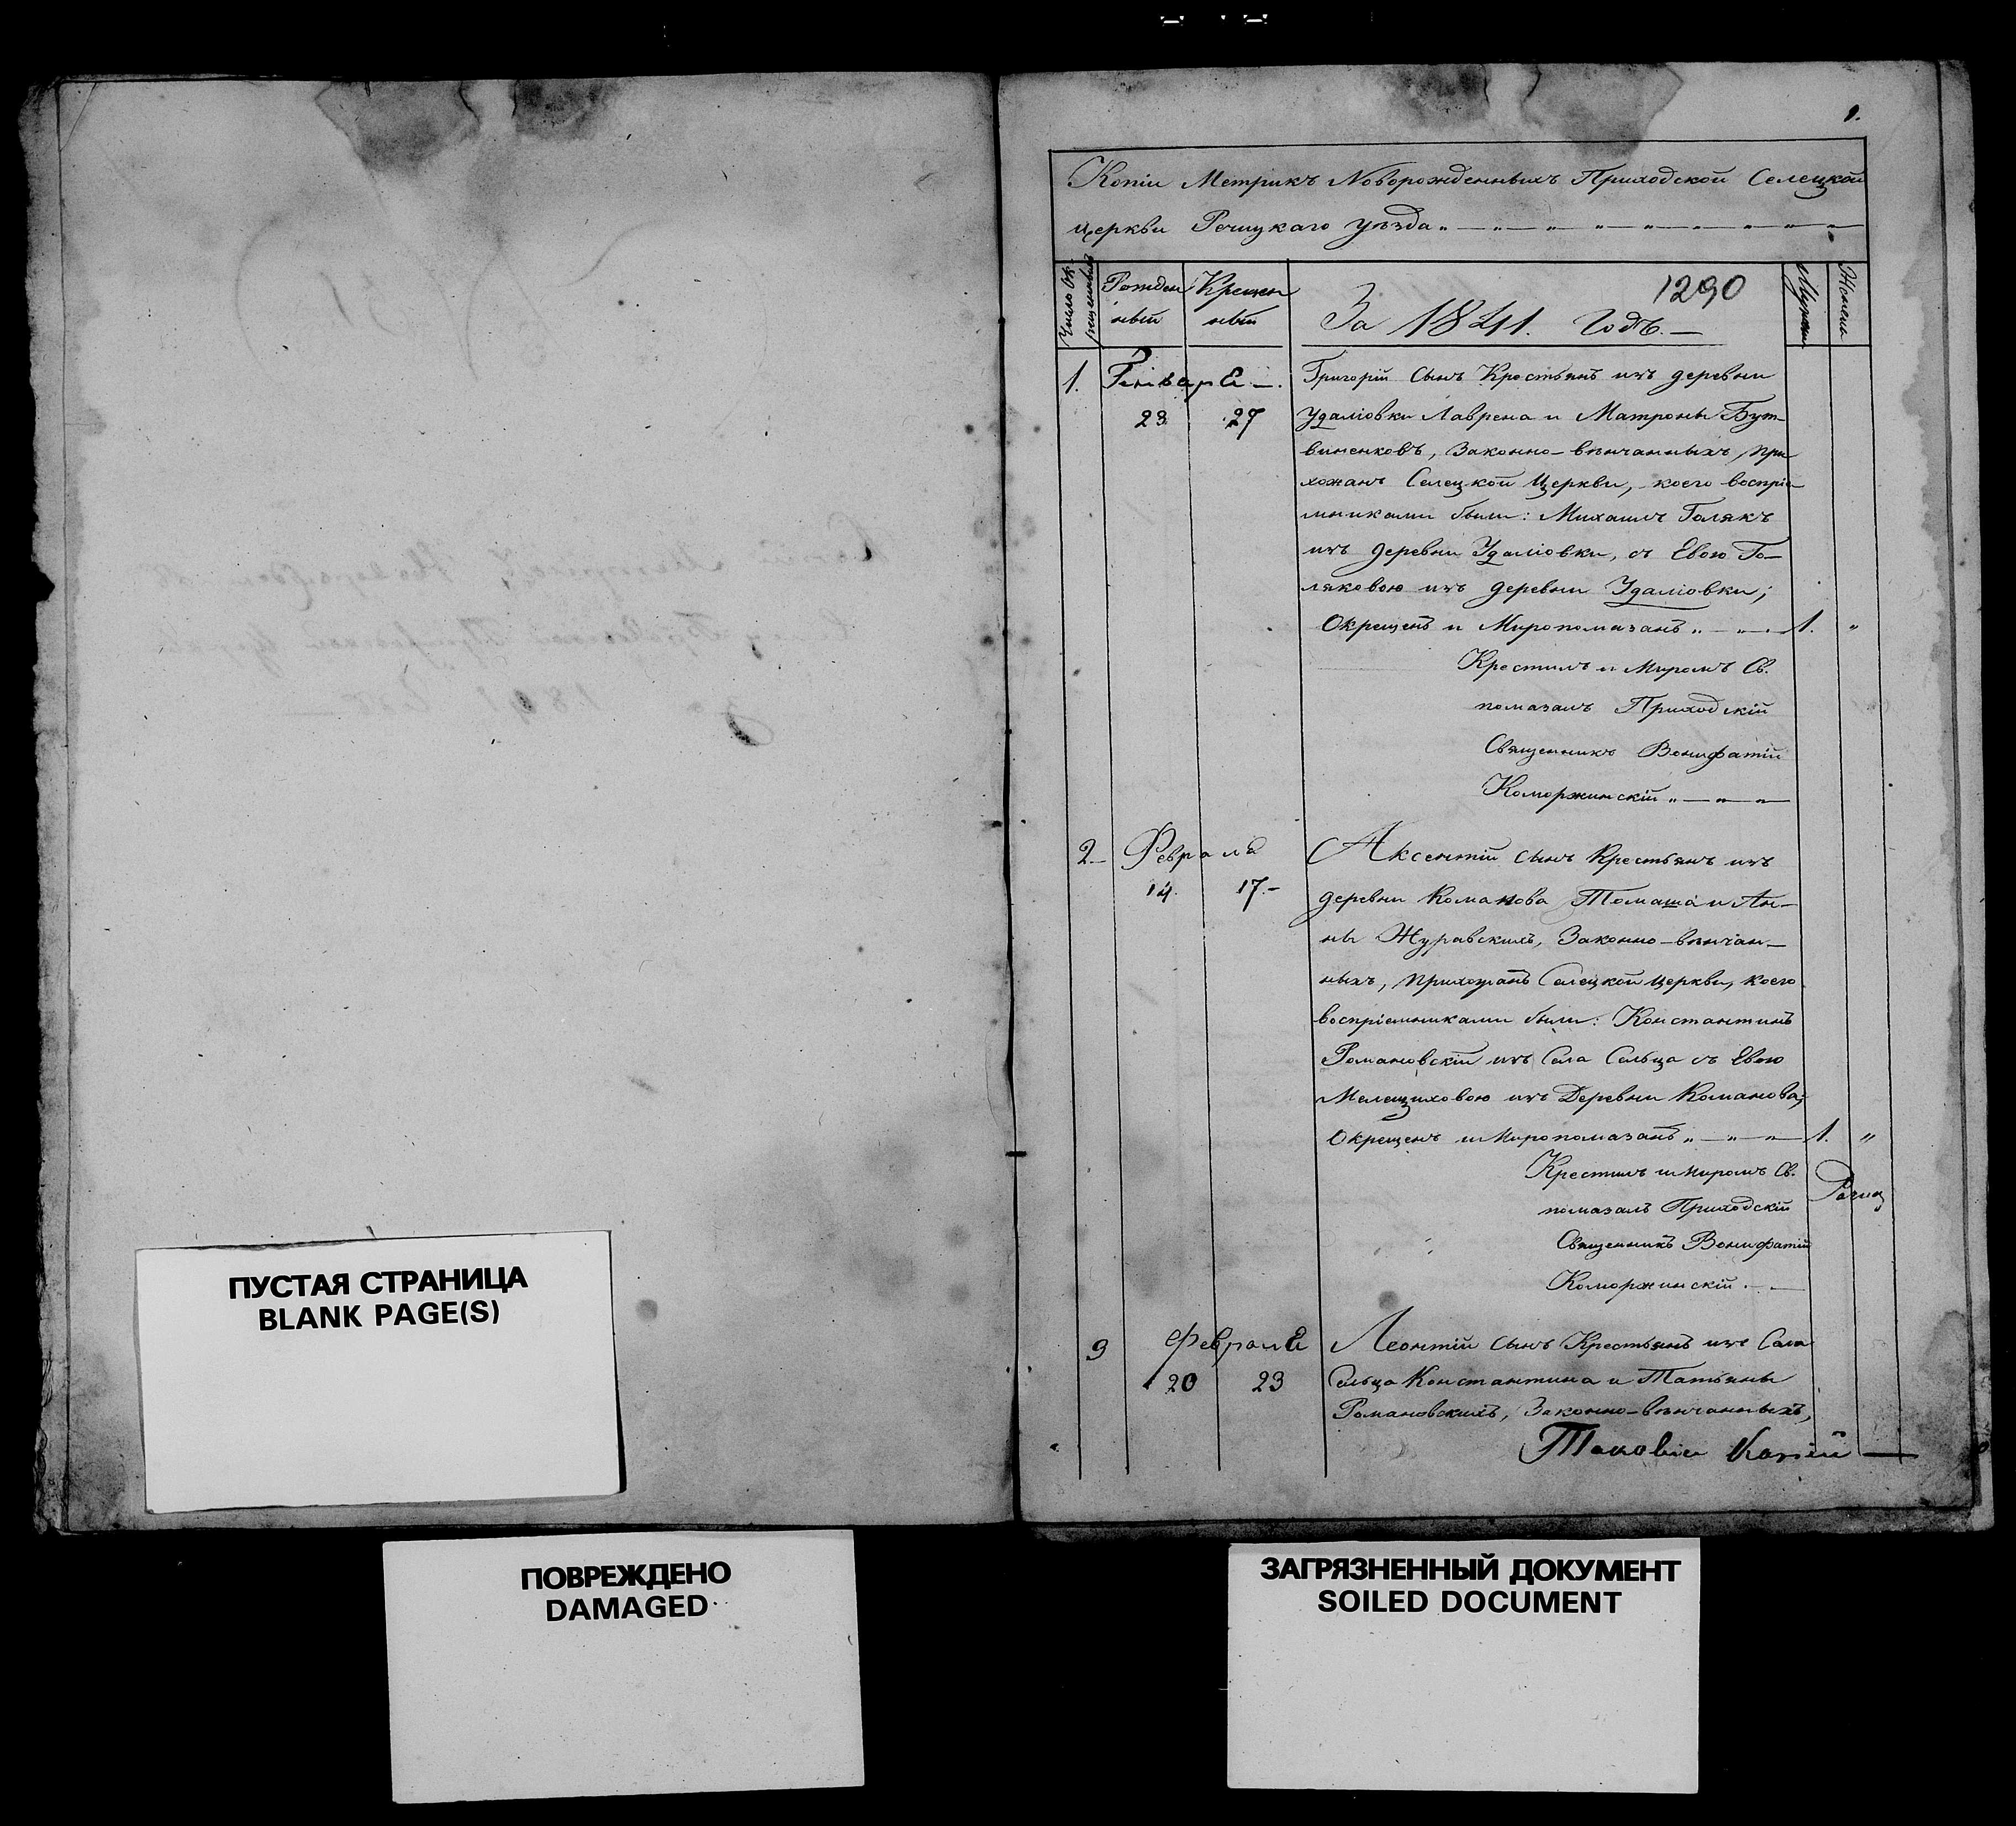 1.
Копіи Метрикъ Новорожденныхъ Приходской Селецкой
церкви Речицкаго уѣзда
Число Ок-
рещенныхъ
Рожден
ный
Крещен
ный
1290
За 1841. Годъ.
Мужеск
Женск
1. Генваря Григорій сынъ Крестьянъ изъ деревни
23 27 Удалiовки Лаврена и Матроны Бут-
виненковъ, Законно-вѣнчанныхъ, при
хожанъ Селецкой Церкви, коего воспріе
мниками были: Михаилъ Голякъ
изъ деревни Удалiовки, съ Евою Го-
ляковою изъ деревни Удалiовки;
Окрещенъ и Миропомазанъ 1. "
Крестилъ и Миромъ Св.
помазалъ Приходскій
Священникъ Вонифатій
Коморжинскій
2 Февраля Аксентій сынъ Крестьянъ изъ
14. 17. деревни Команова Томаша и Ан-
ны Журавскихъ, Законно-вѣнчан-
ныхъ, прихожанъ Селецкой церкви, коего
воспріемниками были: Константинъ
Романовскій изъ Села Сельца съ Евою
Мелещиховою изъ Деревни Команова;
Окрещенъ и Миропомазанъ 1. "
Крестилъ и миромъ Св.
помазалъ Приходскій
Священникъ Вонифатій
Коморжинскій
3 Февраля Леонтій сынъ Крестьянъ изъ Села
20 23 Сельца Константина и Татьяны
Романовскихъ, Законно-вѣнчанныхъ,
Таковыи Копіи
ПУСТАЯ СТРАНИЦА
BLANK PAGE(S)
ПОВРЕЖДЕНО
DAMAGED
ЗАГРЯЗНЕННЫЙ ДОКУМЕНТ
SOILED DOCUMENT